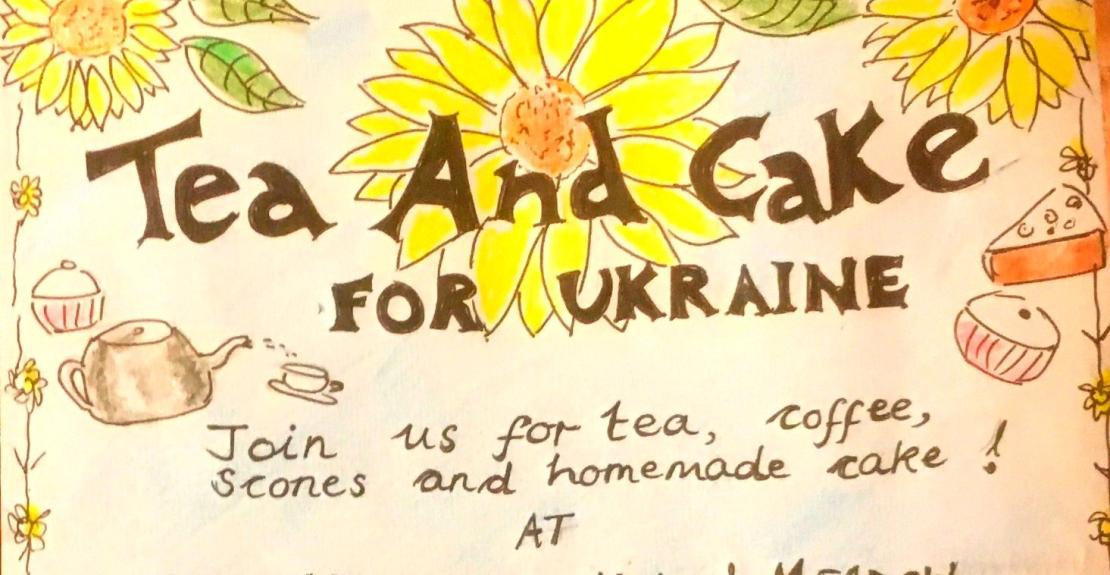 Tea And Cake
FOR UKRAINE
Join us for tea, coffee,
scones and homemade cake !
AT